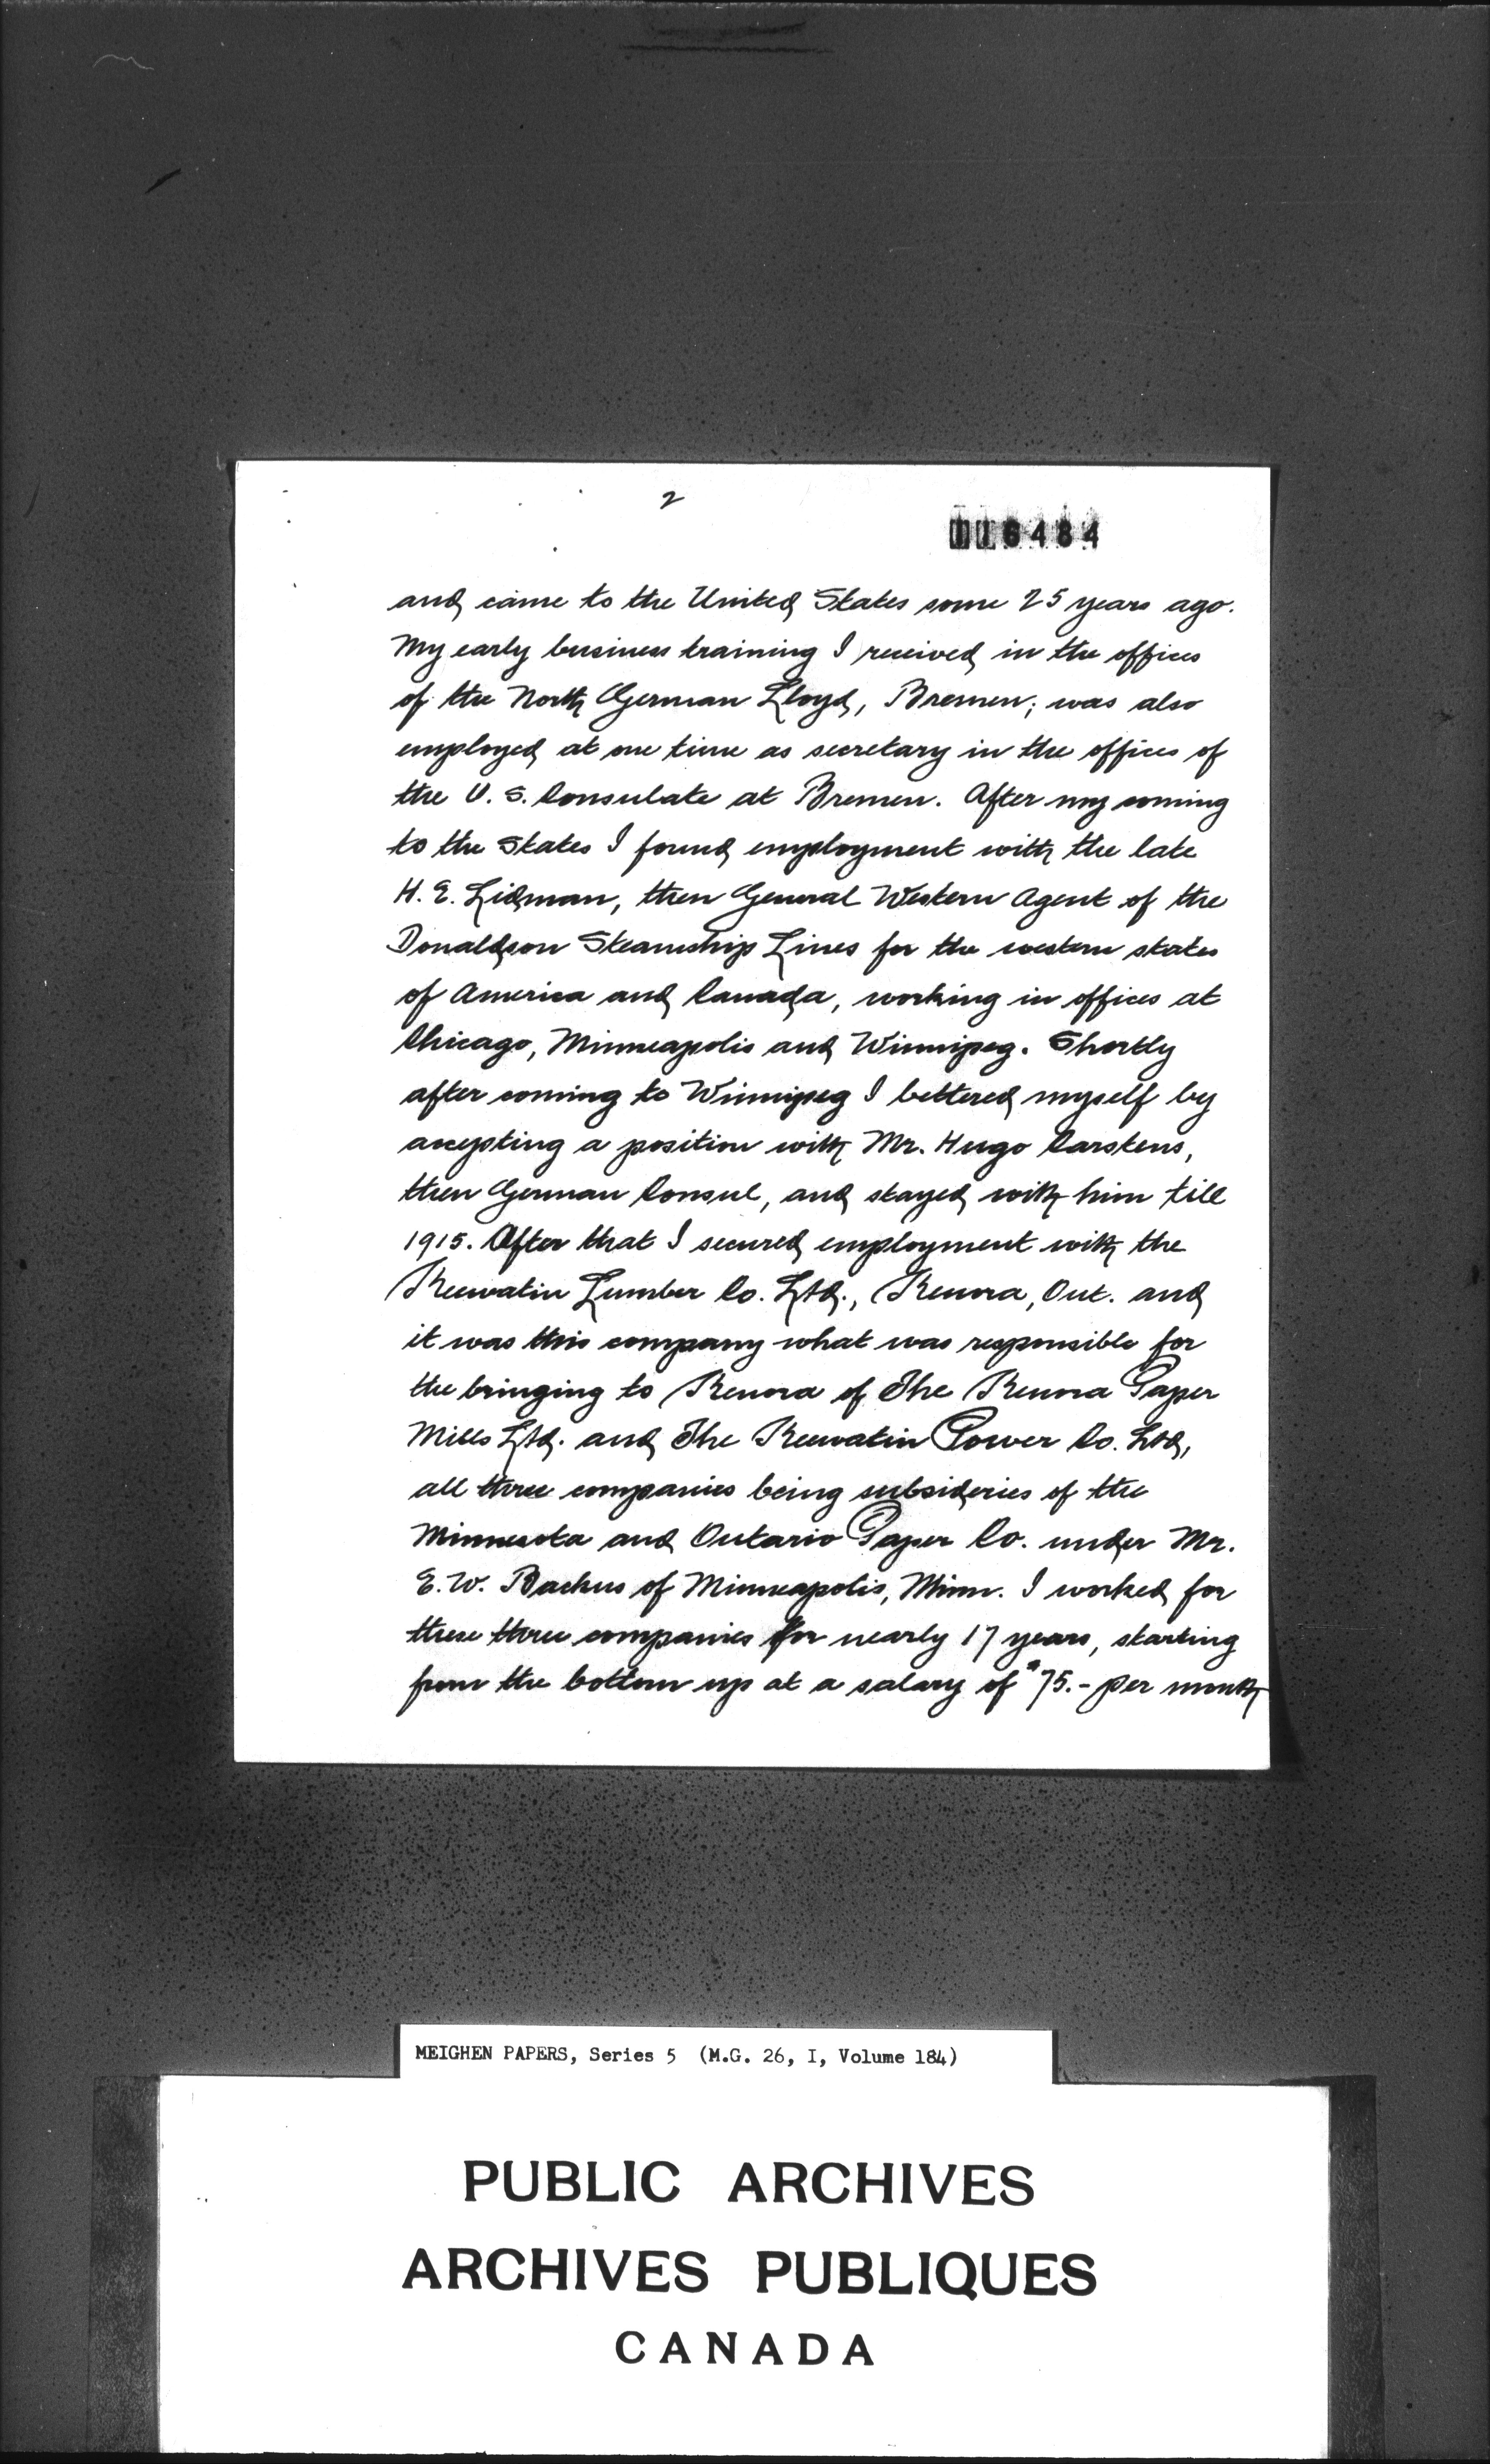 2
116484
and came to the United States some 25 years ago.
My early business training I received in the offices
of the North German Lloyd, Bremen; was also
employed at one time as secretary in the offices of
the U. S. Consulate at Bremen. After my coming
to the States I found employment with the late
H. E. Lidman, then General Western Agent of the
Donaldson Steamship Lines for the western states
of America and Canada, working in offices at
Chicago, Minneapolis and Winnipeg. Shortly
after coming to Winnipeg I bettered myself by
accepting a position with Mr. Hugo Carstens,
then German Consul, and stayed with him till
1915. After that I secured employment with the
Keewatin Lumber Co. Ltd., Kenora, Ont. and
it was this company what was responsible for
the bringing to Kenora of The Kenora Paper
Mills Ltd. and The Keewatin Power Co. Ltd,
all three companies being subsideries of the
Minnesota and Ontario Paper Co. under Mr.
E. W. Backus of Minneapolis, Minn. I worked for
these three companies for nearly 17 years, starting
from the bottom up at a salary of $75.- per month
MEIGHEN PAPERS, Series 5 (M.G. 26, I, Volume 184)
PUBLIC ARCHIVES
ARCHIVES PUBLIQUES
CANADA